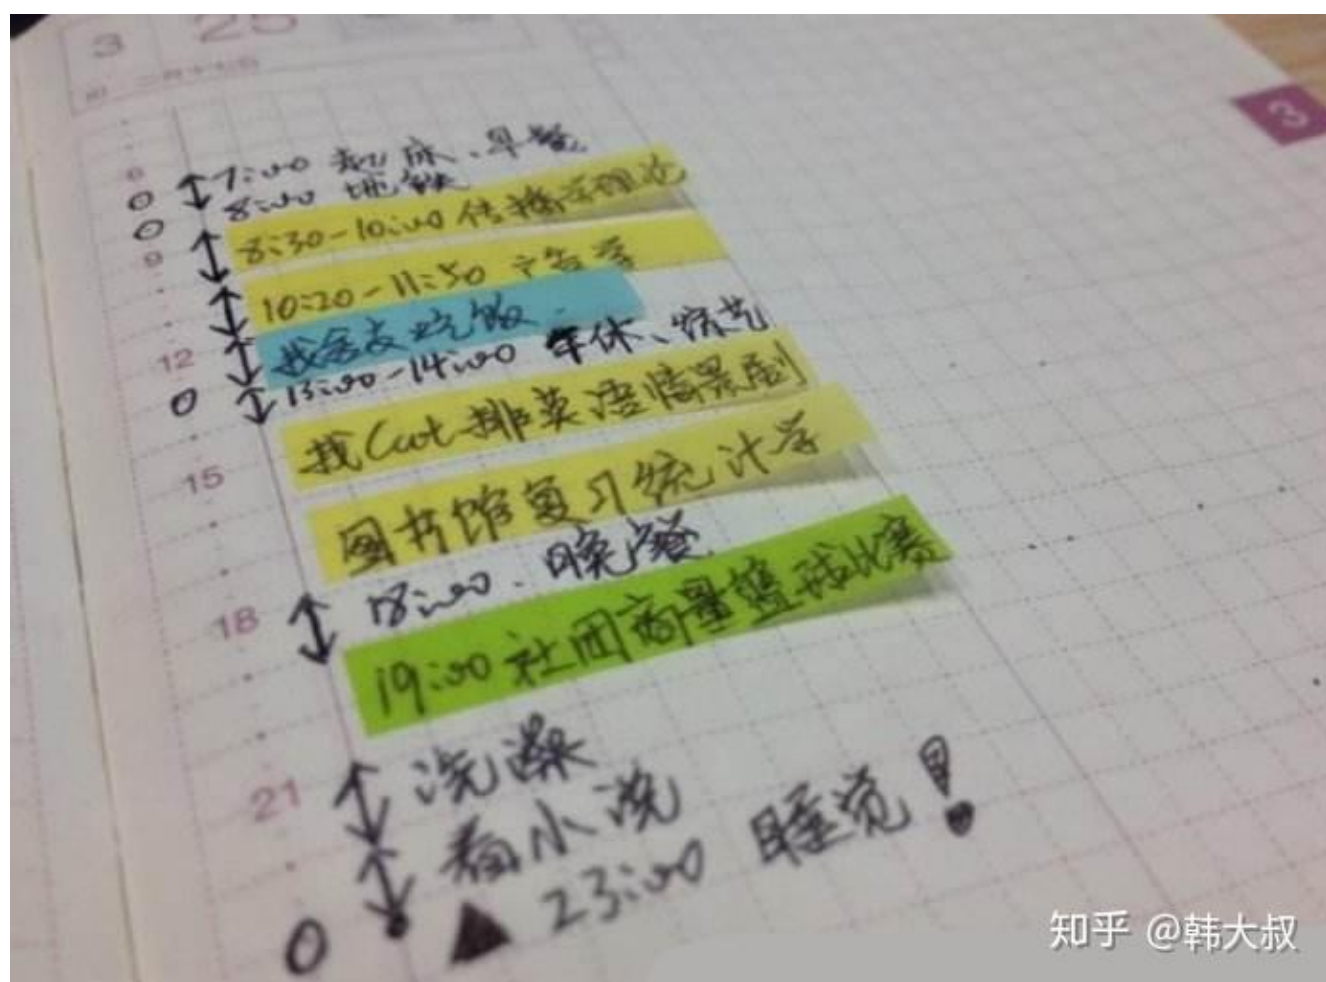 3 25
二月十七
3
6
7:00 起床、早餐
8:00 地铁
8:30-10:00 传播学理论
9
10:20-11:50 广告学
找舍友吃饭.
12
13:00-14:00 午休、综艺
找Cat排英语情景剧
15
图书馆复习统计学
18:00. 晚餐
18
19:00 社团商量篮球比赛
洗澡
21
看小说
▲ 23:00 睡觉!
知乎 @韩大叔